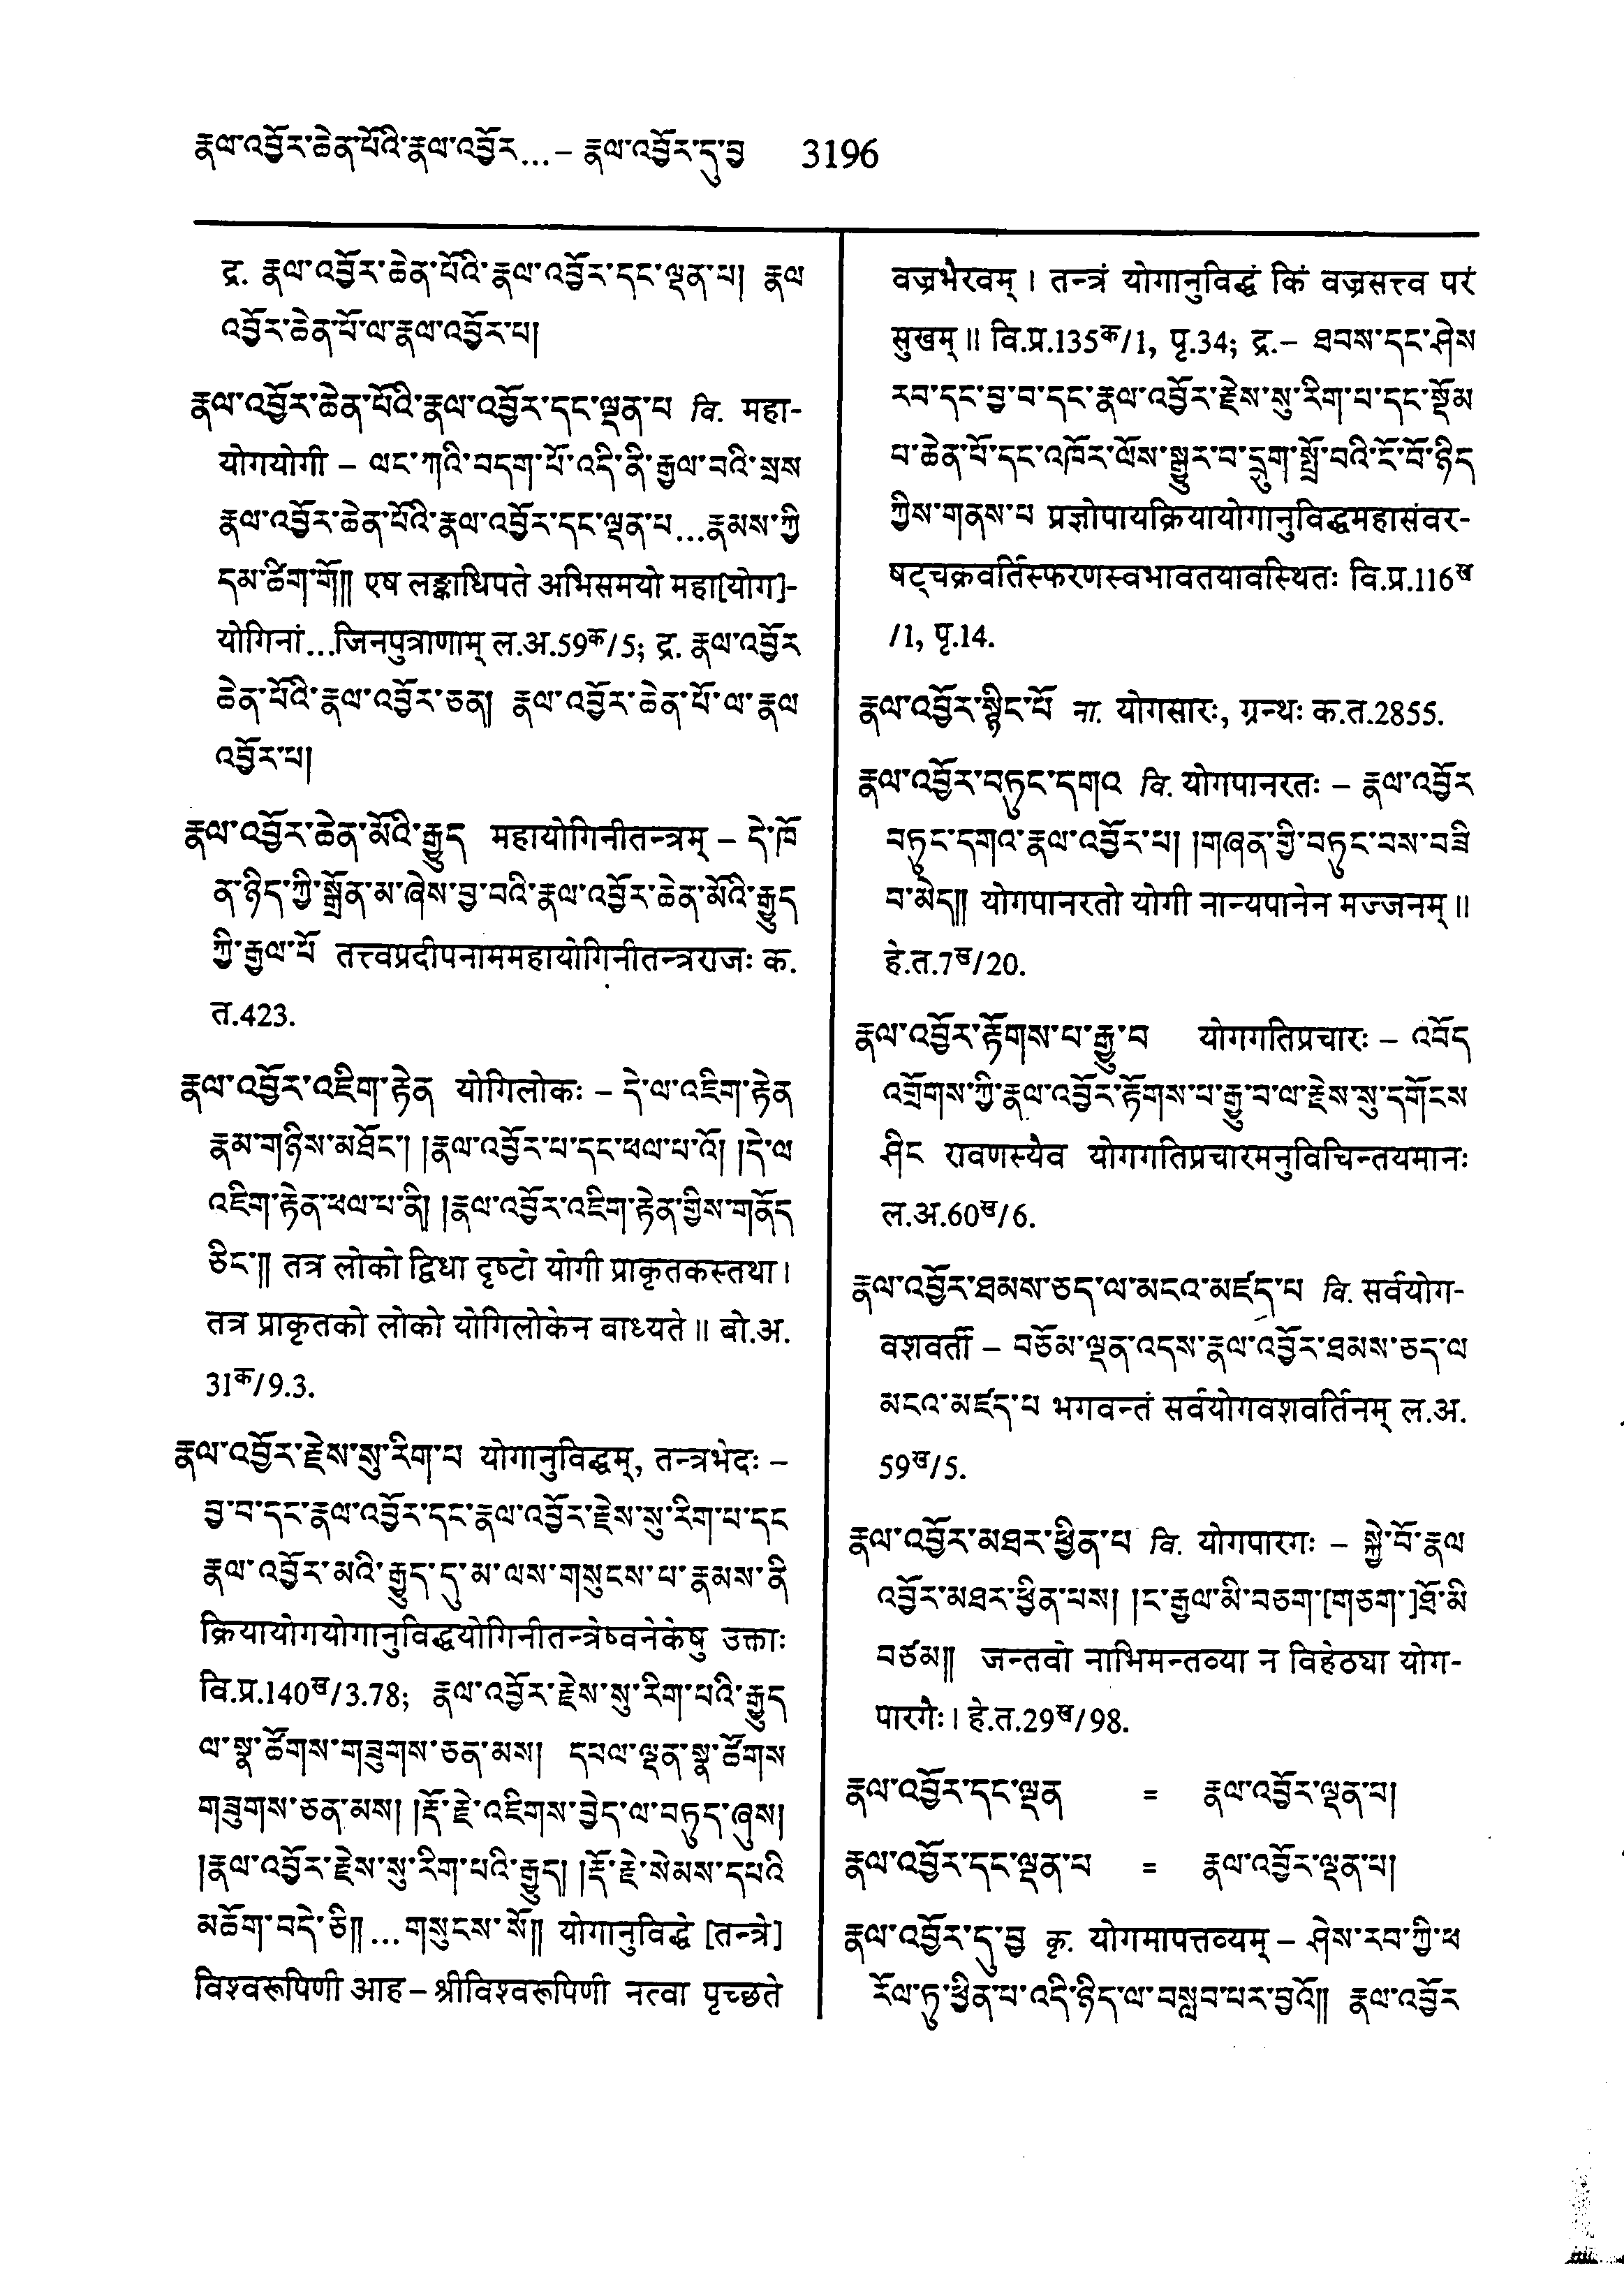 རྣལ་འབྱོར་ཆེན་པོའི་རྣལ་འབྱོར...– རྣལ་འབྱོར་དུ་བྱ 3196
द्र. རྣལ་འབྱོར་ཆེན་པོའི་རྣལ་འབྱོར་དང་ལྡན་པ། རྣལ
འབྱོར་ཆེན་པོ་ལ་རྣལ་འབྱོར་པ།
རྣལ་འབྱོར་ཆེན་པོའི་རྣལ་འབྱོར་དང་ལྡན་པ वि. महा-
योगयोगी – ལང་ཀའི་བདག་པོ་འདི་ནི་རྒྱལ་བའི་སྲས
རྣལ་འབྱོར་ཆེན་པོའི་རྣལ་འབྱོར་དང་ལྡན་པ...རྣམས་ཀྱི
དམ་ཚིག་གོ།། एष लङ्काधिपते अभिसमयो महा[योग]-
योगिनां...जिनपुत्राणाम् ल.अ.59क/5; द्र. རྣལ་འབྱོར
ཆེན་པོའི་རྣལ་འབྱོར་ཅན། རྣལ་འབྱོར་ཆེན་པོ་ལ་རྣལ
འབྱོར་པ།
རྣལ་འབྱོར་ཆེན་མོའི་རྒྱུད महायोगिनीतन्त्रम् – དེ་ཁོ
ན་ཉིད་ཀྱི་སྒྲོན་མ་ཞེས་བྱ་བའི་རྣལ་འབྱོར་ཆེན་མོའི་རྒྱུད
ཀྱི་རྒྱལ་པོ तत्त्वप्रदीपनाममहायोगिनीतन्त्रराजः क.
त.423.
རྣལ་འབྱོར་འཇིག་རྟེན योगिलोकः – དེ་ལ་འཇིག་རྟེན
རྣམ་གཉིས་མཐོང་། །རྣལ་འབྱོར་པ་དང་ཕལ་པ་འོ། །དེ་ལ
འཇིག་རྟེན་ཕལ་པ་ནི། །རྣལ་འབྱོར་འཇིག་རྟེན་གྱིས་གནོད
ཅིང་།། तत्र लोको द्विधा दृष्टो योगी प्राकृतकस्तथा।
तत्र प्राकृतको लोको योगिलोकेन बाध्यते॥ बो.अ.
31क/9.3.
རྣལ་འབྱོར་རྗེས་སུ་རིག་པ योगानुविद्धम्, तन्त्रभेदः –
བྱ་བ་དང་རྣལ་འབྱོར་དང་རྣལ་འབྱོར་རྗེས་སུ་རིག་པ་དང
རྣལ་འབྱོར་མའི་རྒྱུད་དུ་མ་ལས་གསུངས་པ་རྣམས་ནི
क्रियायोगयोगानुविद्धयोगिनीतन्त्रेष्वनेकेषु उक्ताः
वि.प्र.140ख/3.78; རྣལ་འབྱོར་རྗེས་སུ་རིག་པའི་རྒྱུད
ལ་སྣ་ཚོགས་གཟུགས་ཅན་མས། དཔལ་ལྡན་སྣ་ཚོགས
གཟུགས་ཅན་མས། །རྡོ་རྗེ་འཇིགས་བྱེད་ལ་བཏུད་ཞུས།
།རྣལ་འབྱོར་རྗེས་སུ་རིག་པའི་རྒྱུད། །རྡོ་རྗེ་སེམས་དཔའི
མཆོག་བདེ་ཅི།། ...གསུངས་སོ།། योगानुविद्धे [तन्त्रे]
विश्वरूपिणी आह – श्रीविश्वरूपिणी नत्वा पृच्छते
वज्रभैरवम्। तन्त्रं योगानुविद्धं किं वज्रसत्त्व परं
सुखम्॥ वि.प्र.135क/1, पृ.34; द्र.– ཐབས་དང་ཤེས
རབ་དང་བྱ་བ་དང་རྣལ་འབྱོར་རྗེས་སུ་རིག་པ་དང་སྡོམ
པ་ཆེན་པོ་དང་འཁོར་ལོས་སྒྱུར་བ་དྲུག་སྤྲོ་བའི་ངོ་བོ་ཉིད
ཀྱིས་གནས་པ प्रज्ञोपायक्रियायोगानुविद्धमहासंवर-
षट्चक्रवर्तिस्फरणस्वभावतयावस्थितः वि.प्र.116ख
/1, पृ.14.
རྣལ་འབྱོར་སྙིང་པོ ना. योगसारः, ग्रन्थः क.त.2855.
རྣལ་འབྱོར་བཏུང་དགའ वि. योगपानरतः – རྣལ་འབྱོར
བཏུང་དགའ་རྣལ་འབྱོར་པ། །གཞན་གྱི་བཏུང་བས་བཟི
བ་མེད།། योगपानरतो योगी नान्यपानेन मज्जनम्॥
हे.त.7ख/20.
རྣལ་འབྱོར་རྟོགས་པ་རྒྱུ་བ योगगतिप्रचारः – འབོད
འགྲོགས་ཀྱི་རྣལ་འབྱོར་རྟོགས་པ་རྒྱུ་བ་ལ་རྗེས་སུ་དགོངས
ཤིང रावणस्यैव योगगतिप्रचारमनुविचिन्तयमानः
ल.अ.60ख/6.
རྣལ་འབྱོར་ཐམས་ཅད་ལ་མངའ་མཛད་པ वि. सर्वयोग-
वशवर्ती – བཅོམ་ལྡན་འདས་རྣལ་འབྱོར་ཐམས་ཅད་ལ
མངའ་མཛད་པ भगवन्तं सर्वयोगवशवर्तिनम् ल.अ.
59ख/5.
རྣལ་འབྱོར་མཐར་ཕྱིན་པ वि. योगपारगः – སྐྱེ་བོ་རྣལ
འབྱོར་མཐར་ཕྱིན་པས། །ང་རྒྱལ་མི་བཅག་[གཅག་]ཐོ་མི
བཙམ།། जन्तवो नाभिमन्तव्या न विहेठ्या योग-
पारगैः। हे.त.29ख/98.
རྣལ་འབྱོར་དང་ལྡན = རྣལ་འབྱོར་ལྡན་པ།
རྣལ་འབྱོར་དང་ལྡན་པ = རྣལ་འབྱོར་ལྡན་པ།
རྣལ་འབྱོར་དུ་བྱ कृ. योगमापत्तव्यम् – ཤེས་རབ་ཀྱི་ཕ
རོལ་ཏུ་ཕྱིན་པ་འདི་ཉིད་ལ་བསླབ་པར་བྱའོ།། རྣལ་འབྱོར